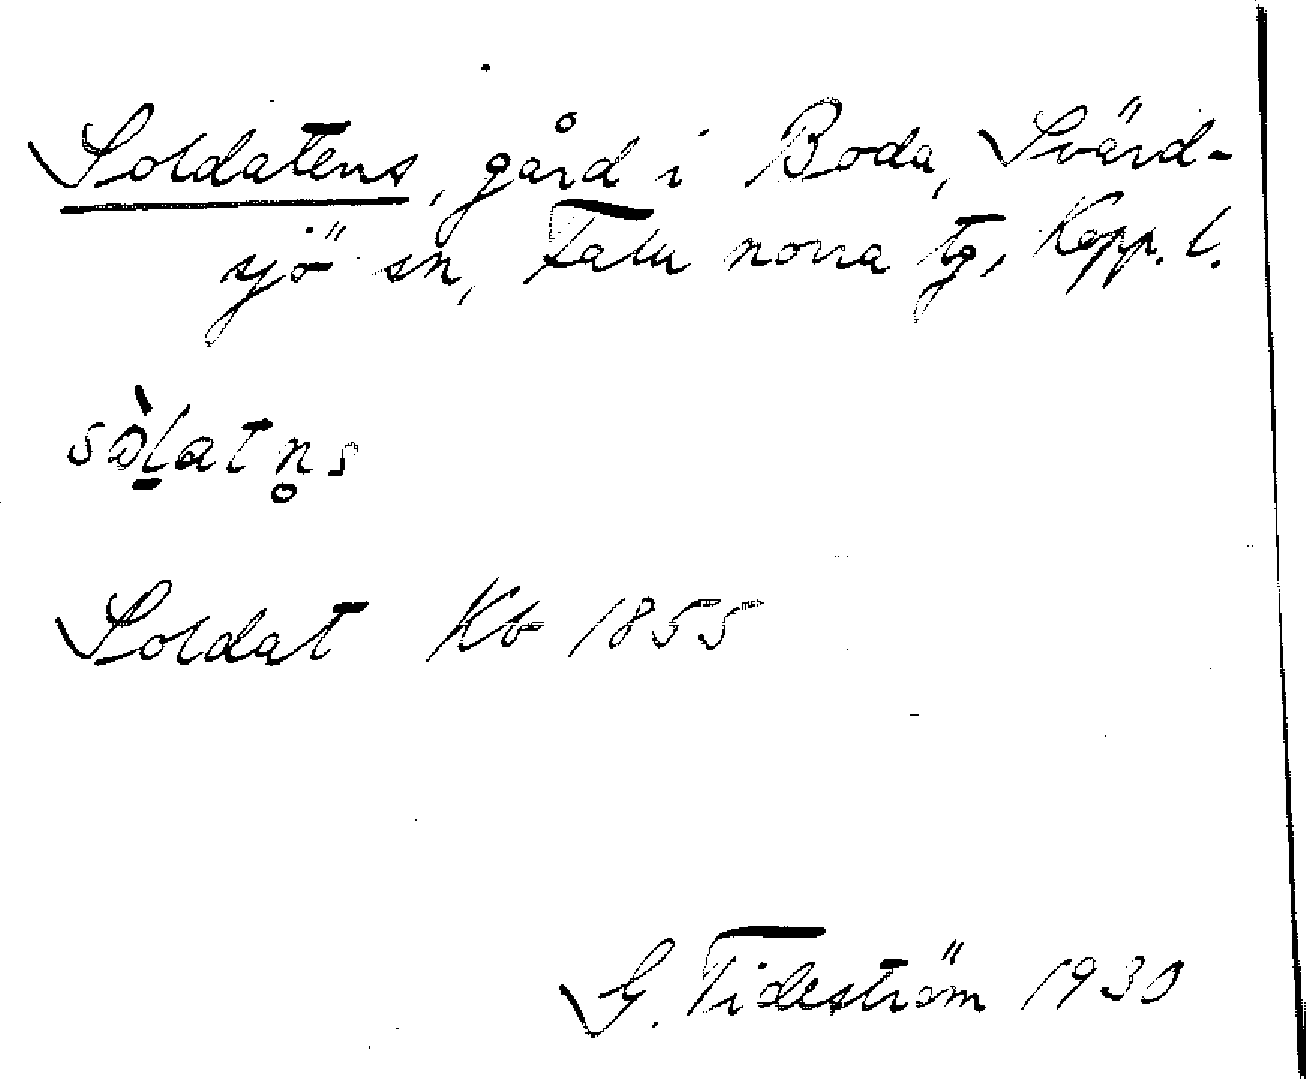 Soldatens, gård i Boda, Svärd-
sjö sn, Falu norra tg, Kopp. l.
sɷ̀l̠atn̥s
Soldat Kb 1855
G. Tideström 1930